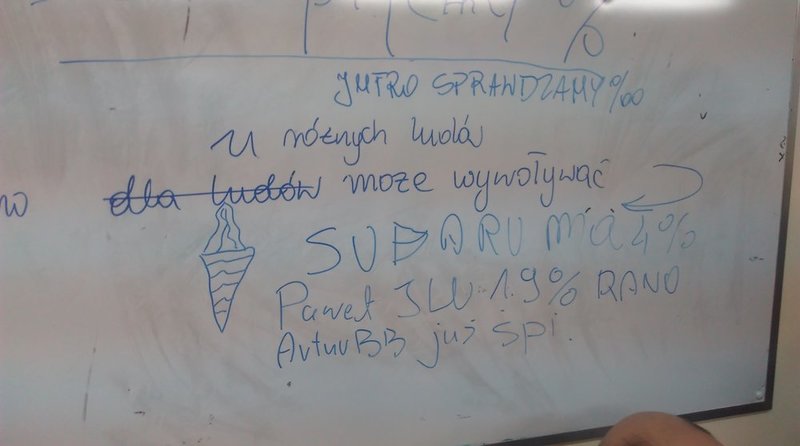 %
JUTRO SPRAWDZAMY ‰
u różnych ludów
dla ludów może wywoływać
SUBARU ma 4%
Paweł JLU 1.9% RANO
ArturBB już śpi.